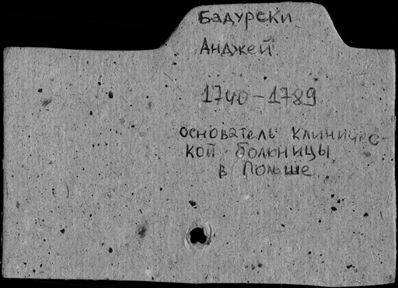 Бадурски
Анджей
1740-1789
основатель клиничес-
кой больницы
в Польше